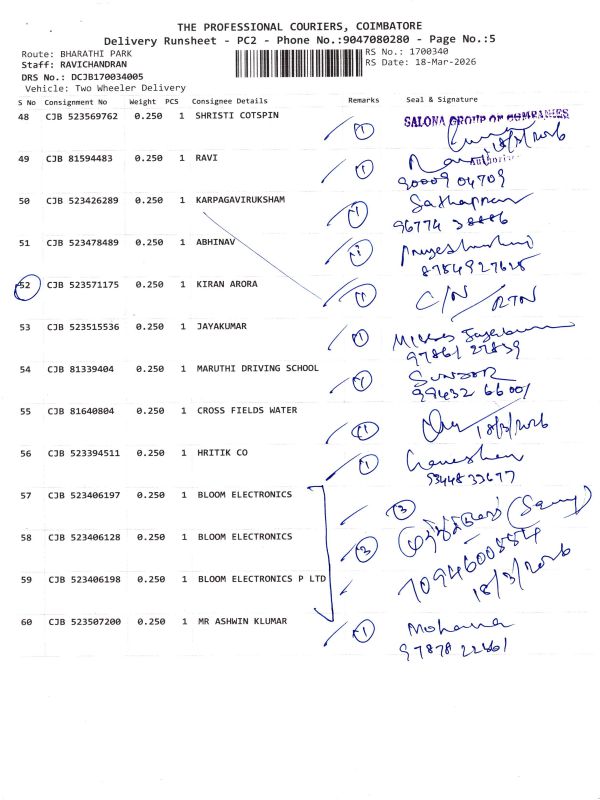 THE PROFESSIONAL COURIERS, COIMBATORE
Delivery Runsheet - PC2 - Phone No.:9047080280 - Page No.:5
Route: BHARATHI PARK RS No.: 1700340
Staff: RAVICHANDRAN RS Date: 18-Mar-2026
DRS No.: DCJB170034005
Vehicle: Two Wheeler Delivery
S No Consignment No Weight PCS Consignee Details Remarks Seal & Signature
48 CJB 523569762 0.250 1 SHRISTI COTSPIN 1 SALONA GROUP OF COMPANIES
18/3/2026
49 CJB 81594483 0.250 1 RAVI 1
90009 04709
50 CJB 523426289 0.250 1 KARPAGAVIRUKSHAM 1 Sathappan
96774 38886
51 CJB 523478489 0.250 1 ABHINAV 1
8754927625
52 CJB 523571175 0.250 1 KIRAN ARORA 1 C/N / RTN
53 CJB 523515536 0.250 1 JAYAKUMAR 1
97861 27839
54 CJB 81339404 0.250 1 MARUTHI DRIVING SCHOOL 1 SUNDOR
99432 66001
55 CJB 81640804 0.250 1 CROSS FIELDS WATER 1 18/3/2026
56 CJB 523394511 0.250 1 HRITIK CO 1
9344833677
57 CJB 523406197 0.250 1 BLOOM ELECTRONICS 3
58 CJB 523406128 0.250 1 BLOOM ELECTRONICS 3
7094600884
59 CJB 523406198 0.250 1 BLOOM ELECTRONICS P LTD 18/3/2026
60 CJB 523507200 0.250 1 MR ASHWIN KLUMAR 1 Mohana
97878 22461